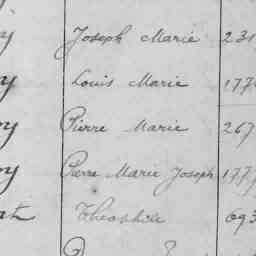 y Joseph Marie 231
y Louis Marie 177
oy Pierre Marie 267
oy Pierre Marie Joseph 177
Théophile 693